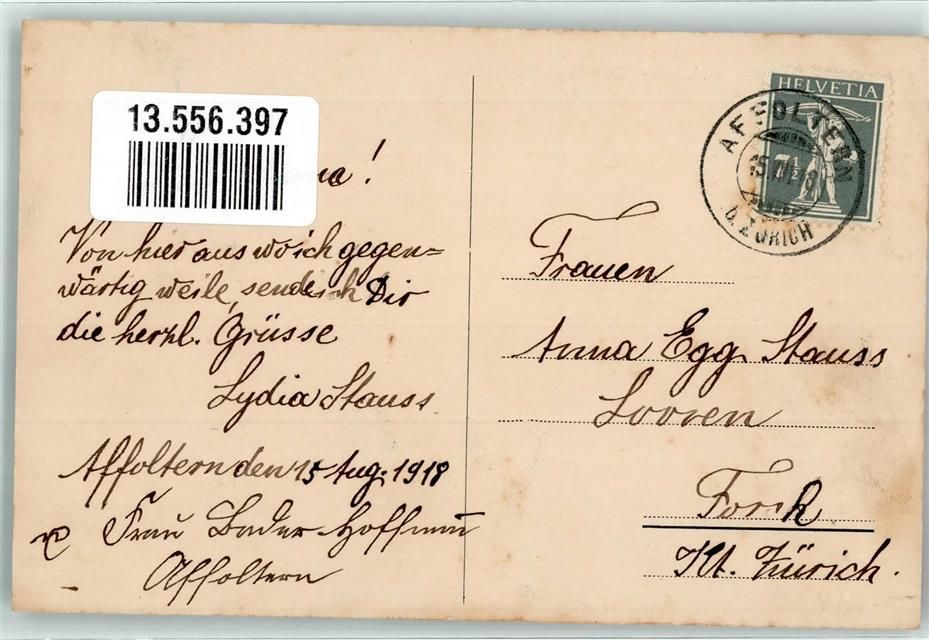 13.556.397
!
Von hier aus wo ich gegen=
wärtig weile, sende ich Dir
die herzl. Grüsse
Lydia Stauss
Affoltern den 15 Aug. 1918
Frau Bader-Hoffmann
Affoltern
HELVETIA
7½
AFFOLTERN
b. ZÜRICH
Frauen
Anna Egg-Stauss
Looren
Forch
Kt. Zürich.